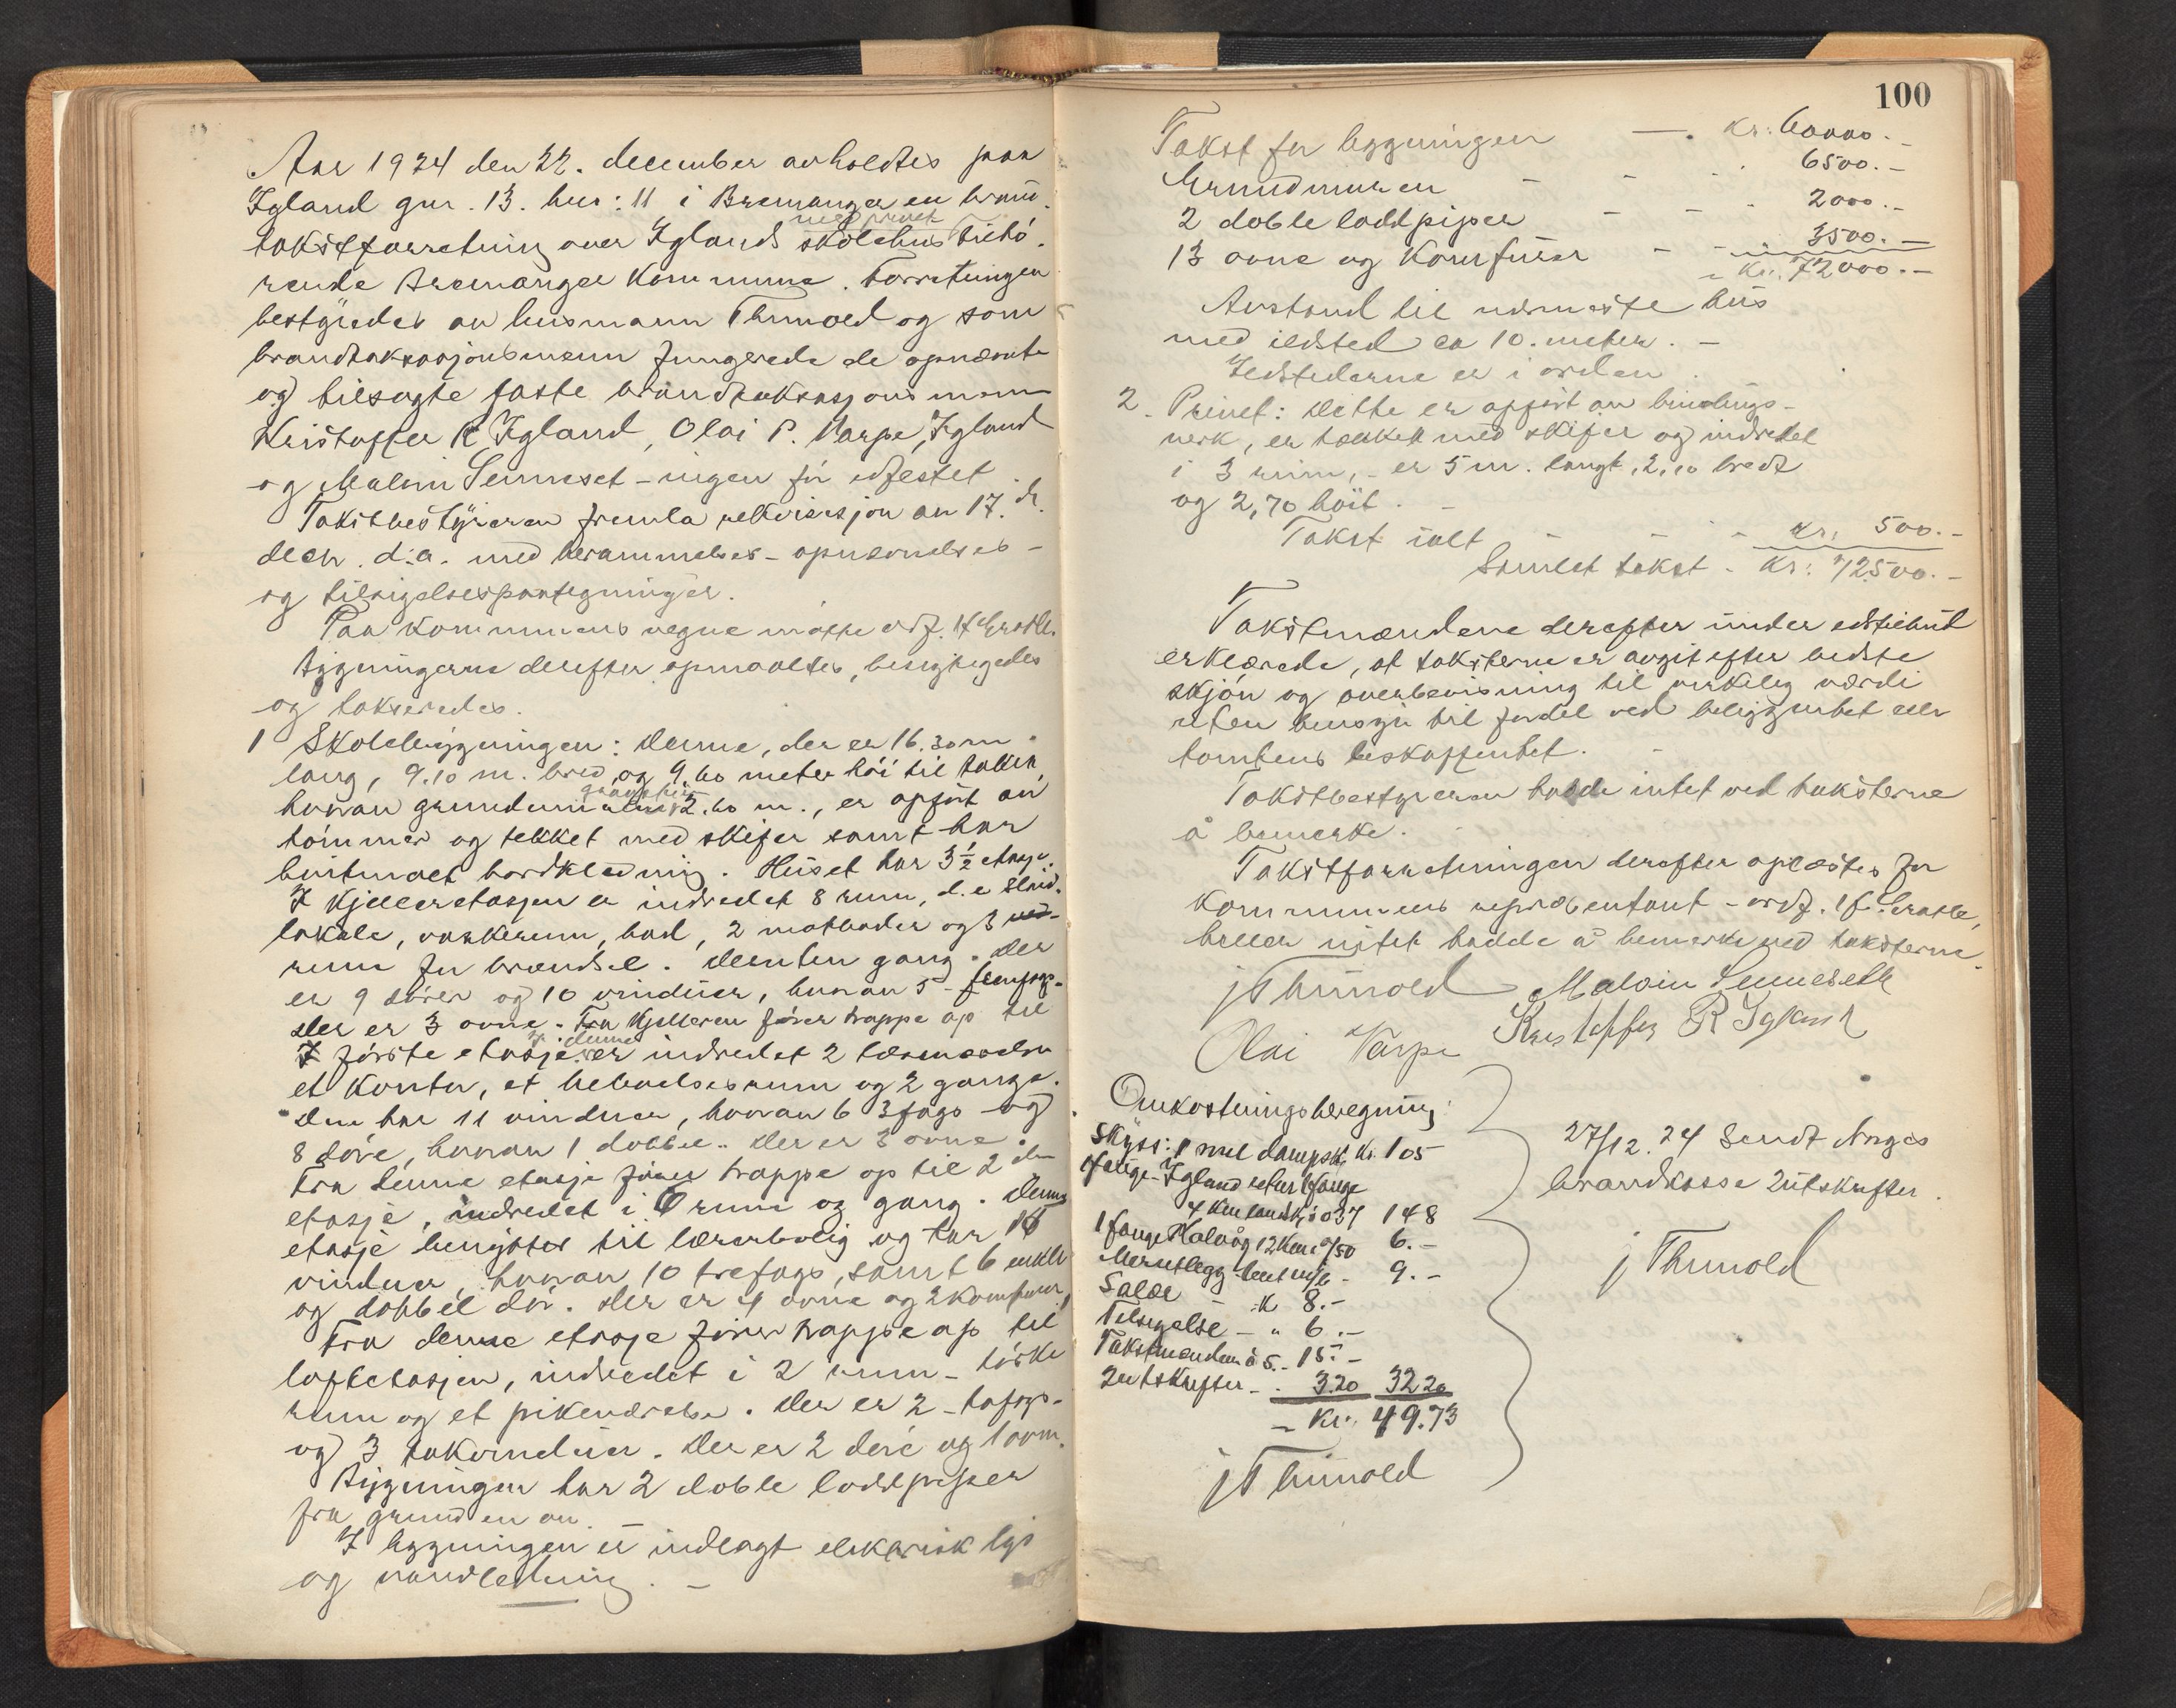 Aar 1924 den 22. december avholdtes paa
Igland gnr. 13. bnr: 11 i Bremanger en brand-
med privet
takstforretning over Iglands skolehus tilhö-
rende Bremanger Kommune. Forretningen
bestyredes av lensmann Thunold og som
brandtaksasjonsmenn fungerede de opnævnte
og tilsagte faste brandtaksasjonsmenn
Kristoffer R. Igland, Olai P. Varpe, Igland
og Malvin Senneset - ingen för edfestet
Takstbestyreren fremla rekvisisjon av 17. ds.
decbr. d.a. med berammelses- opnævnelses-
og tilsigelsespaategninger.
Paa kommunens vegne møtte ordf.
Bygningerne derefter opmaaltes, besigtigedes
og takseredes.
1 Skolebygningen: Denne, der er 16.30 m.
lang, 9.10 m. bred og 9.60 meter höi til taket,
graasten
hvorav grundmuren 2.60 m., er opfört av
tömmer og tekket med skifer samt har
hvitmalt bordklædning. Huset har 3½ etasje.
I Kjelleretasjen er indredet 8 rum, d.e. sløid-
lokale, vaskerum, bad, 2 matboder og 3 ved-
rum for brændsel. Desuten gang. Der
er 9 dörer og 10 vinduer, hvorav 5 - femfags.
Der er 3 ovne. Fra Kjelleren förer trappe op til
I denne
I förste etasje. er indredet 2 læreværelser
et kontor, et beboelsesrum og 2 gange.
Den har 11 vinduer, hvorav 6 3fags og
8 döre, hvorav 1 dobbel. Der er 3 ovne.
Fra denne etasje förer trappe op til 2den
etasje, indredet i 6 rum og gang. Denne
etasje benyttes til lærerbolig og har 15
vinduer, hvorav 10 trefags, samt 6 enkle
og dobbel dör. Der er 4 ovne og 2 komfurer.
Fra denne etasje förer trappe op til
loftetasjen, indredet i 2 rum - törke
rum og et pikeværelse. Der er 2 - tofags-
og 3 takvinduer. Der er 2 döre og 1 ovn.
Bygningen har 2 doble loddpiper
fra grunden av.
I bygningen er indlagt elektrisk lys
og vandledning. -
100
Takst for bygningen - . kr: 60000.-
Grundmuren - - - 6500.-
2 doble loddpiper - - - 2000.-
13 ovne og Komfürer - - 3500.-
- Kr. 72000.-
Avstand til nærmeste hus
med ildsted ca 10. meter. -
Ildstederne er i orden.
2. Privet: Dette er opfört av bindings-
verk, er tækket med skifer og indredet
i 3 rum, - er 5 m. langt, 2,10 bredt
og 2,70 höit. -
Takst ialt - - - kr. 500.-
Samlet takst - Kr: 72500.-
Takstmændene derefter under edstilbud
erklærede, at taksterne er avgit efter bedste
skjön og overbevisning til virkelig værdi
uten hensyn til fordel ved beliggenhet eller
tomtens beskaffenhet. -
Takstbestyreren hadde intet ved taksterne
å bemerke.
Takstforretningen derefter oplæstes for
kommunens repræsentant - ordf.
heller intet hadde å bemerke ved taksterne.
J Thunold Malvin Senneseth
Olai Varpe Kristoffer R Igland
Omkostningsberegning:
Skyss: 1 mil dampsk. Kr. 1 05
Igland retur
4 Km landsk. à 037 1 48
1 12 Km à 0/50 6.-
9.-
Salær - K 8.-
Tilsigelse - " 6.-
Takstmænden à 5.- 15.-
2 utskrifter - . 3.20 32 20
- Kr. 49.73
J Thunold
27/12. 24 Sendt Norges
brandkasse 2 utskrifter.
J Thunold